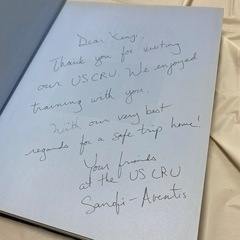 Dear Xing,
Thank you for visiting
our US CRU. We enjoyed
training with you.
With our very best
regards for a safe trip home!
Your friends
at the US CRU
Sanofi-Aventis